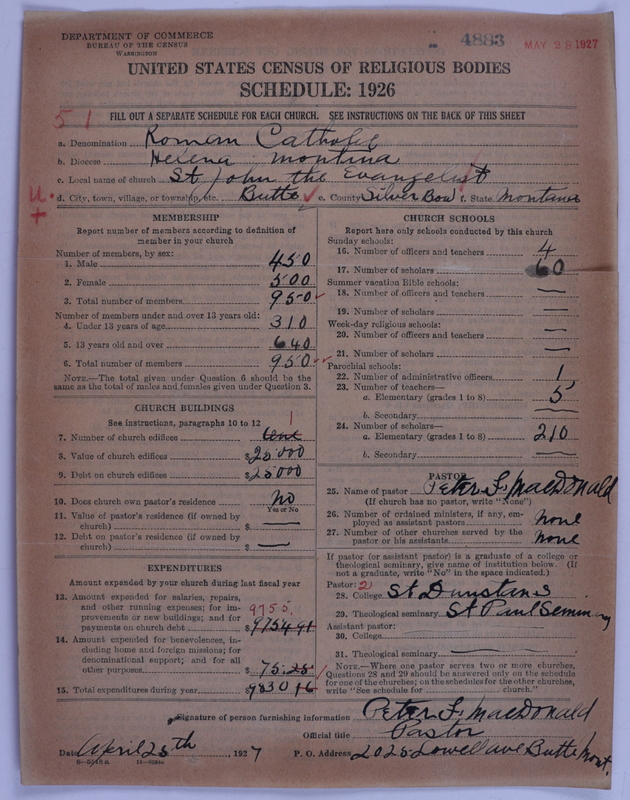 DEPARTMENT OF COMMERCE
BUREAU OF THE CENSUS
WASHINGTON
4883
MAY 28 1927
UNITED STATES CENSUS OF RELIGIOUS BODIES
SCHEDULE: 1926
51
FILL OUT A SEPARATE SCHEDULE FOR EACH CHURCH. SEE INSTRUCTIONS ON THE BACK OF THIS SHEET
a. Denomination Roman Catholic
b. Diocese Helena Montina
c. Local name of church St John the Evangelist
d. City, town, village, or township, etc. Butte e. County Silver Bow f. State Montana
U.
+
MEMBERSHIP
Report number of members according to definition of
member in your church
Number of members, by sex:
1. Male 450
2. Female 500
3. Total number of members 950
Number of members under and over 13 years old:
4. Under 13 years of age 310
5. 13 years old and over 640
6. Total number of members 950
NOTE.—The total given under Question 6 should be the
same as the total of males and females given under Question 3.
CHURCH BUILDINGS
See instructions, paragraphs 10 to 12
7. Number of church edifices 1
8. Value of church edifices $25000
9. Debt on church edifices $25000
10. Does church own pastor's residence No
Yes or No
11. Value of pastor's residence (if owned by
church) $ —
12. Debt on pastor's residence (if owned by
church) $ —
EXPENDITURES
Amount expended by your church during last fiscal year
13. Amount expended for salaries, repairs,
and other running expenses; for im-
provements or new buildings; and for
payments on church debt $9754.91
9755
14. Amount expended for benevolences, in-
cluding home and foreign missions; for
denominational support; and for all
other purposes $75.25
15. Total expenditures during year $9830 16
CHURCH SCHOOLS
Report here only schools conducted by this church
Sunday schools:
16. Number of officers and teachers 4
17. Number of scholars 60
Summer vacation Bible schools:
18. Number of officers and teachers —
19. Number of scholars —
Week-day religious schools:
20. Number of officers and teachers —
21. Number of scholars —
Parochial schools:
22. Number of administrative officers 1
23. Number of teachers—
a. Elementary (grades 1 to 8) 5
b. Secondary —
24. Number of scholars—
a. Elementary (grades 1 to 8) 210
b. Secondary —
PASTOR
25. Name of pastor Peter F. MacDonald
(If church has no pastor, write "None")
26. Number of ordained ministers, if any, em-
ployed as assistant pastors none
27. Number of other churches served by the
pastor or his assistants none
If pastor (or assistant pastor) is a graduate of a college or
theological seminary, give name of institution below. (If
not a graduate, write "No" in the space indicated.)
Pastor: 2
28. College St Dunstans
29. Theological seminary St Paul Seminary
Assistant pastor:
30. College
31. Theological seminary —
NOTE.—Where one pastor serves two or more churches,
Questions 28 and 29 should be answered only on the schedule
for one of the churches; on the schedules for the other churches,
write "See schedule for church."
Signature of person furnishing information Peter F. MacDonald
Official title Pastor
Date April 25th, 1927 P. O. Address 2025 Lowell ave Butte Mont.